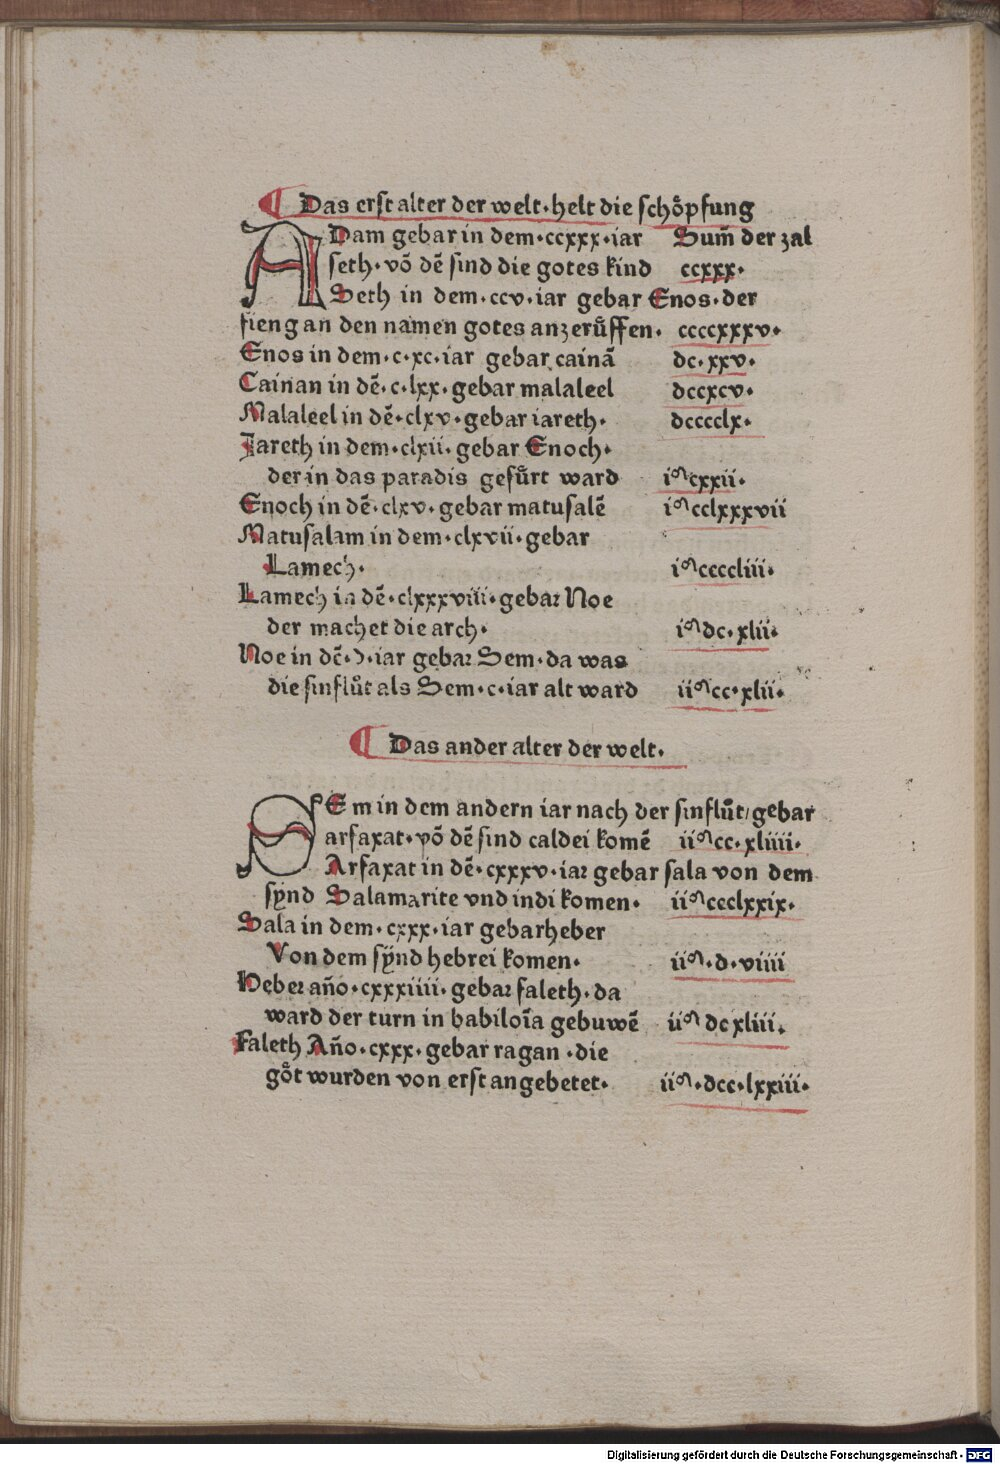 Das erst alter der welt·helt die schoͤpfung
ADam gebar in dem·ccxxx·iar Sum̄ der zal
seth·võ dẽ sind die gotes kind ccxxx·
Seth in dem·ccv·iar gebar Enos·der
fieng an den namen gotes anzeruͤffen· ccccxxxv·
Enos in dem·c·xc·iar gebar cainã dc·xxv·
Cainan in dẽ·c·lxx·gebar malaleel dccxcv·
Malaleel in dẽ·clxv·gebar iareth· dcccclx·
Jareth in dem·clxii·gebar Enoch·
der in das paradis gefuͤrt ward iᵐcxxii·
Enoch in dẽ·clxv·gebar matusalẽ iᵐcclxxxvii
Matusalam in dem·clxvii·gebar
Lamech· iᵐccccliii·
Lamech in dẽ·clxxxviii·gebar Noe
der machet die arch· iᵐdc·xlii·
Noe in dẽ·d·iar gebar Sem·da was
die sinfluͦt als Sem·c·iar alt ward iiᵐcc·xlii·
Das ander alter der welt·
SEm in dem andern iar nach der sinfluͦt/gebar
arfaxat·võ dẽ sind caldei komẽ iiᵐcc·xliiii·
Arfaxat in dẽ·cxxxv·iar gebar sala von dem
sÿnd Salamarite vnd indi komen· iiᵐccclxxix·
Sala in dem·cxxx·iar gebarheber
Von dem sÿnd hebrei komen· iiᵐ·d·viiii
Heber año·cxxxiiii·gebar faleth·da
ward der turn in babiloĩa gebuwẽ iiᵐdcxliii·
Faleth Año·cxxx·gebar ragan·die
goͤt wurden von erst angebetet· iiᵐ·dcc·lxxiii·
Digitalisierung gefördert durch die Deutsche Forschungsgemeinschaft - DFG